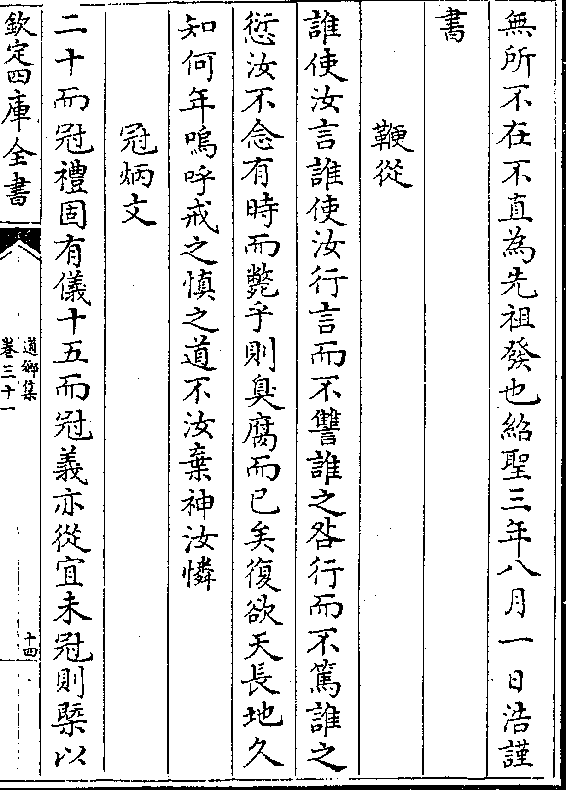 無所不在不直為先祖發也紹聖三年八月一日浩謹
書
鞭從
誰使汝言誰使汝行言而不讐誰之咎行而不篤誰之
愆汝不念有時而斃乎則臭腐而已矣復欲天長地久
知何年嗚呼戒之慎之道不汝棄神汝憐
冠炳文
二十而冠禮固有儀十五而冠義亦從宜未冠則槩以
欽定四庫全書
道鄉集
卷三十一
十四